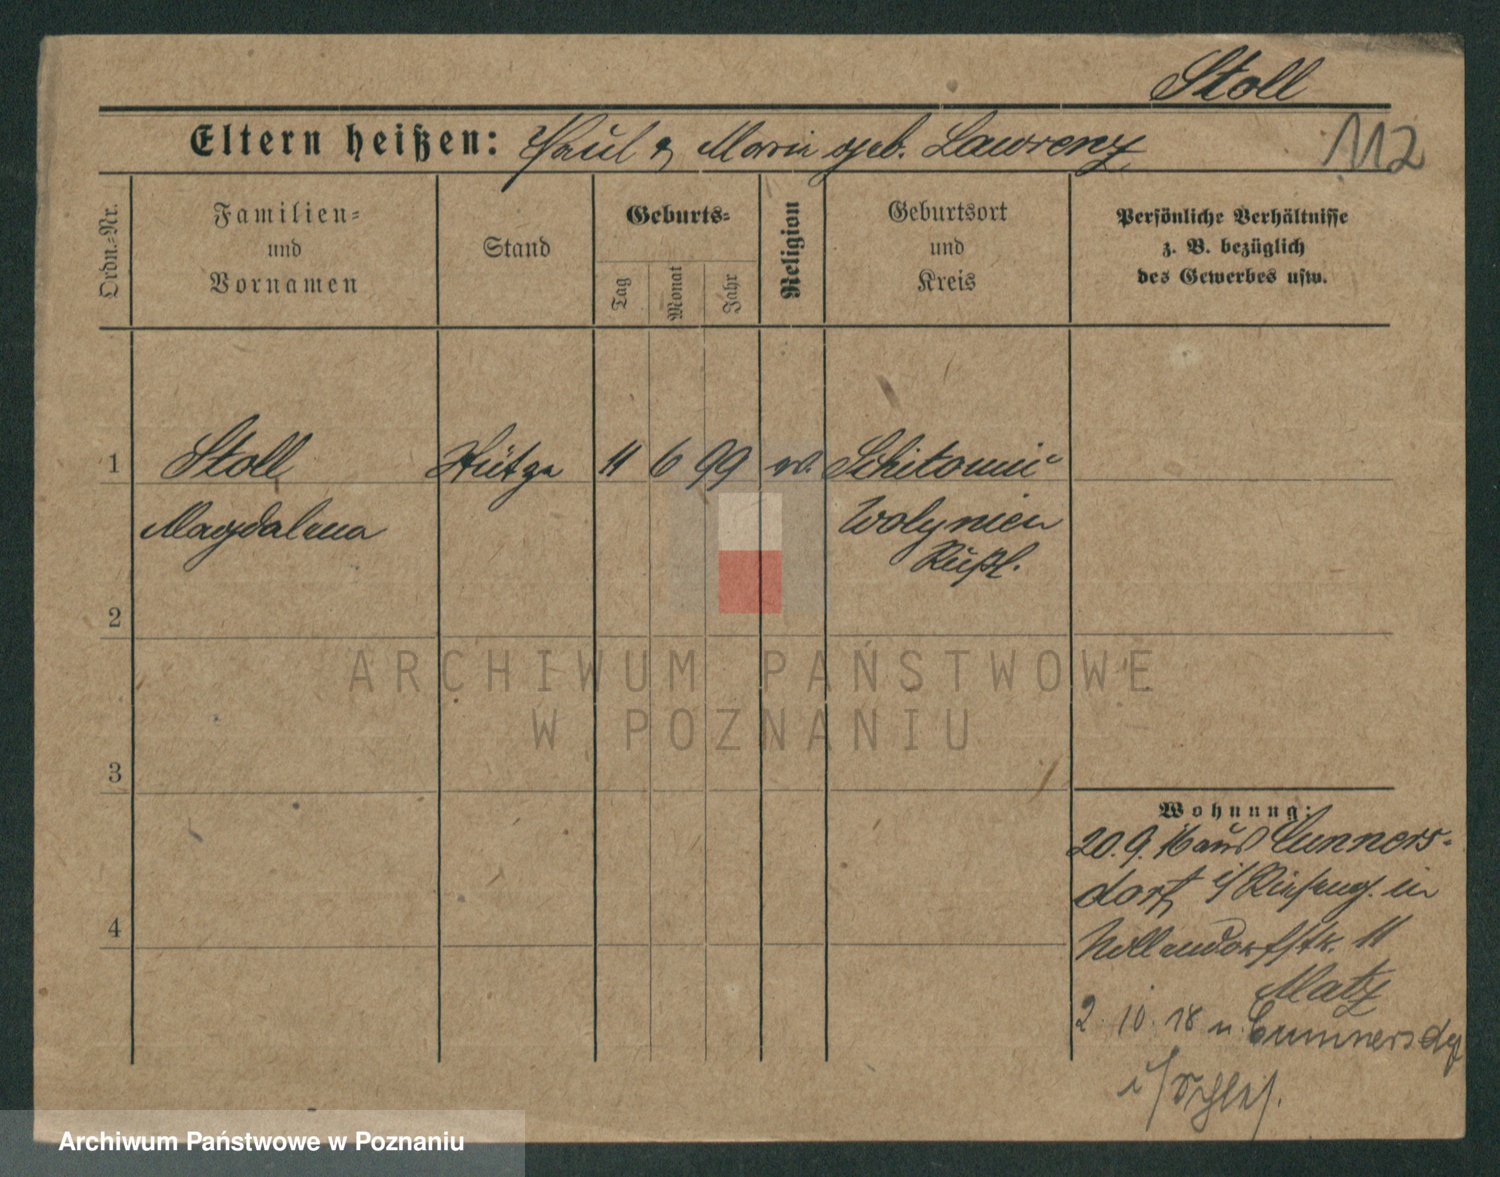 Stoll
Eltern heißen: Paul & Marie geb. Lawrenz
112
Ordn.-Nr.
Familien-
und
Vornamen
Stand
Geburts-
Tag
Monat
Jahr
Religion
Geburtsort
und
Kreis
Persönliche Verhältnisse
z. B. bezüglich
des Gewerbes usw.
1 Stoll Stütze 11 6 99 ev. Schitomir
Magdalena Wolynien
Rußl.
2
3
4
Wohnung:
20. 9. 16 aus Cunners-
dorf i/Rieseng. in
Nollendorfstr. 11
Matz
2 10. 18 n. Cunnersdf
i/Schles.
ARCHIWUM PAŃSTWOWE
W POZNANIU
Archiwum Państwowe w Poznaniu